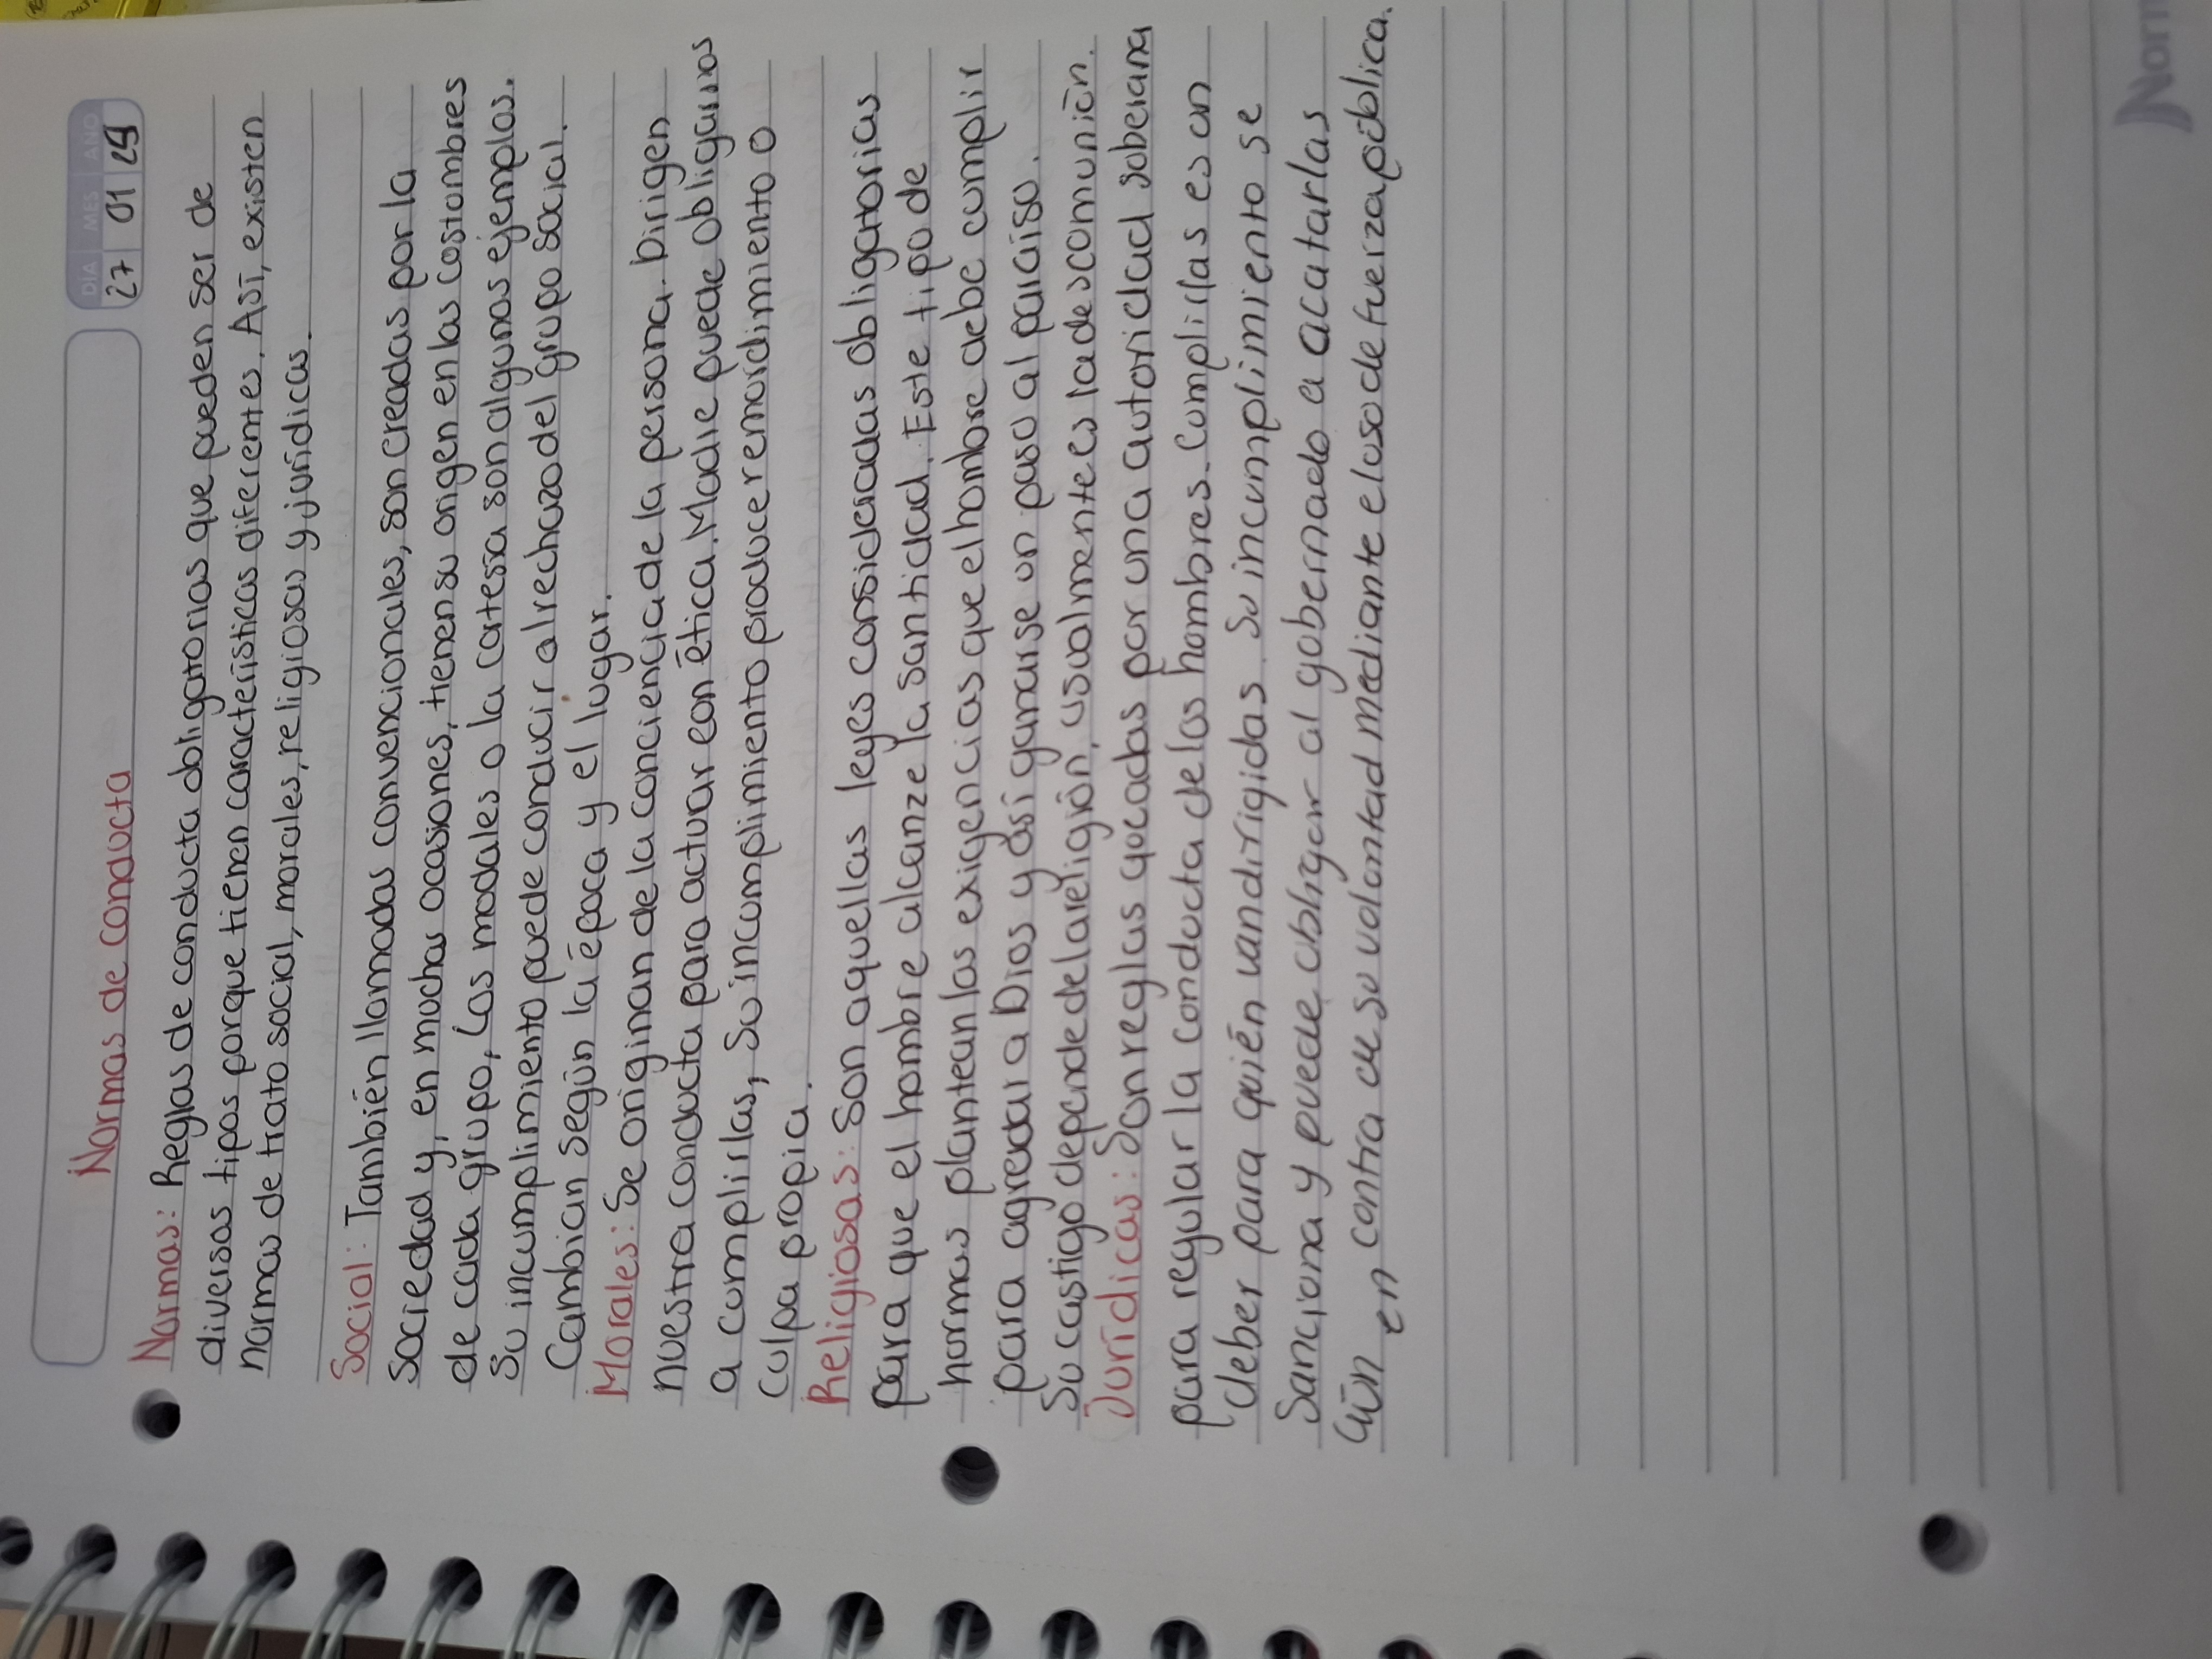 DIA MES AÑO
27 01 29
Normas de conducta
Normas: Reglas de conducta obligatorias que pueden ser de
diversos tipos porque tienen características diferentes. Así, existen
normas de trato social, morales, religiosas y jurídicas.
Social: También llamadas convencionales, son creadas por la
sociedad y, en muchas ocasiones, tienen su origen en las costumbres
de cada grupo, Los modales o la cortesía son algunos ejemplos.
Su incumplimiento puede conducir al rechazo del grupo social.
Cambian según la época y el lugar.
Morales: Se originan de la conciencia de la persona. Dirigen
nuestra conducta para actuar con ética. Nadie puede obligarnos
a cumplirlas, Su incumplimiento produce remordimiento o
culpa propia.
Religiosas: Son aquellas leyes consideradas obligatorias
para que el hombre alcanze la santidad. Este tipo de
normas plantean las exigencias que el hombre debe cumplir
para agradar a Dios y así ganarse un paso al paraíso.
Su castigo depende de la religión, usualmente es la descomunión.
Jurídicas: Son reglas avocadas por una autoridad soberana
para regular la conducta de los hombres. Cumplirlas es un
deber para quién van dirigidas. Su incumplimiento se
Sanciona y puede obligar al gobernado a acatarlas
aún en contra de su voluntad mediante el uso de fuerza pública.
Norm